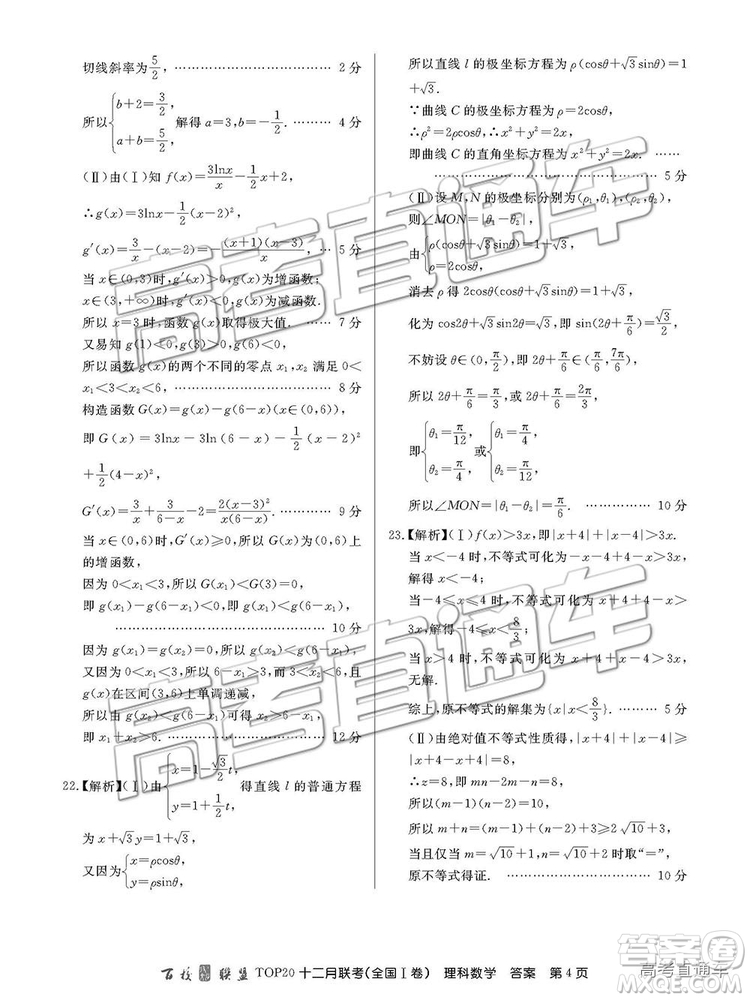 切线斜率为5/2，………………………… 2 分
所以{b+2=3/2, a+b=5/2, 解得 a=3,b=-1/2. ………… 4 分
(Ⅱ)由(Ⅰ)知 f(x)=3lnx/x-1/2x+2,
∴g(x)=3lnx-1/2(x-2)²,
g′(x)=3/x-(x-2)=-(x+1)(x-3)/x, … 5 分
当 x∈(0,3)时,g′(x)>0,g(x)为增函数;
x∈(3,+∞)时,g′(x)<0,g(x)为减函数.
所以 x=3时,函数 g(x)取得极大值. …… 7 分
又易知 g(1)<0,g(3)>0,g(6)<0,
所以函数 g(x)的两个不同的零点 x₁,x₂满足 0<
x₁<3<x₂<6, ………………………… 8 分
构造函数 G(x)=g(x)-g(6-x)(x∈(0,6)),
即 G(x)=3lnx-3ln(6-x)-1/2(x-2)²
+1/2(4-x)²,
G′(x)=3/x+3/(6-x)-2=2(x-3)²/x(6-x). ……… 9 分
当 x∈(0,6)时,G′(x)≥0,所以 G(x)为(0,6)上
的增函数,
因为 0<x₁<3,所以 G(x₁)<G(3)=0,
即 g(x₁)-g(6-x₁)<0,即 g(x₁)<g(6-x₁),
………………………… 10 分
因为 g(x₁)=g(x₂)=0,所以 g(x₂)<g(6-x₁),
又因为 0<x₁<3,所以 3<6-x₁<6,又函数
g(x)在区间(3,6)上单调递减,
所以由 g(x₂)<g(6-x₁)可得 x₂>6-x₁,
即 x₁+x₂>6. ………………………… 12 分
22.【解析】(Ⅰ)由{x=1-√3/2t, y=1+1/2t, 得直线 l 的普通方程
为 x+√3y=1+√3,
又因为{x=ρcosθ, y=ρsinθ,
所以直线 l 的极坐标方程为 ρ(cosθ+√3sinθ)=1
+√3.
∵曲线 C 的极坐标方程为 ρ=2cosθ,
∴ρ²=2ρcosθ,∴x²+y²=2x,
即曲线 C 的直角坐标方程为 x²+y²=2x. ……
………………………… 5 分
(Ⅱ)设 M,N 的极坐标分别为(ρ₁,θ₁),(ρ₂,θ₂),
则∠MON=|θ₁-θ₂|,
由{ρ(cosθ+√3sinθ)=1+√3, ρ=2cosθ,
消去 ρ 得 2cosθ(cosθ+√3sinθ)=1+√3,
化为 cos2θ+√3sin2θ=√3,即 sin(2θ+π/6)=√3/2,
不妨设 θ∈(0,π/2),即 2θ+π/6∈(π/6,7π/6),
所以 2θ+π/6=π/3,或 2θ+π/6=2π/3,
即{θ₁=π/12, θ₂=π/4, 或{θ₁=π/4, θ₂=π/12,
所以∠MON=|θ₁-θ₂|=π/6. …………… 10 分
23.【解析】(Ⅰ)f(x)>3x,即|x+4|+|x-4|>3x.
当 x<-4 时,不等式可化为-x-4-x+4>3x,
解得 x<-4;
当-4≤x≤4 时,不等式可化为 x+4-x+4>
3x,解得-4≤x<8/3;
当 x>4 时,不等式可化为 x+4+x-4>3x,
无解.
综上,原不等式的解集为{x|x<8/3}. …… 5 分
(Ⅱ)由绝对值不等式性质得,|x-4|+|x+4|≥
|(4-x)+(x+4)|=8,
∴z=8,即 m+n=8,
所以(m-1)(n-2)=10,
所以 m+n=(m-1)+(n-2)+3≥2√10+3,
当且仅当 m=√10+1,n=√10+2 时取“=”.
原不等式得证. ………………………… 10 分
百校联盟 TOP20 十二月联考(全国Ⅰ卷) 理科数学 答案 第4页
高考直通车
高考直通车
高考直通车